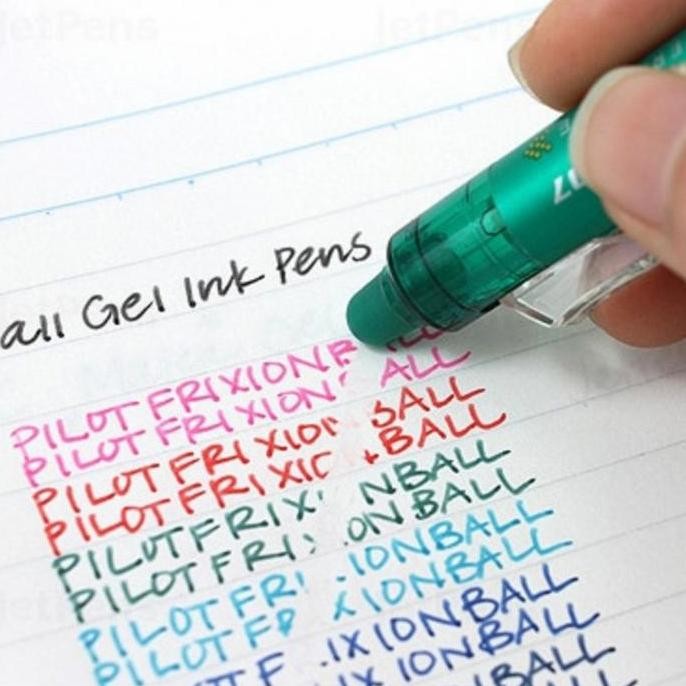 JetPens JetPens
all Gel Ink Pens
PILOT FRIXION
PILOT FRIXION ALL
PILOT FRIXION BALL
PILOT FRIXIO BALL
PILOT FRIX NBALL
PILOT FRI ONBALL
PILOT FR IONBALL
PILOT F XIONBALL
IXIONBALL
IX IONBALL
BALL
07